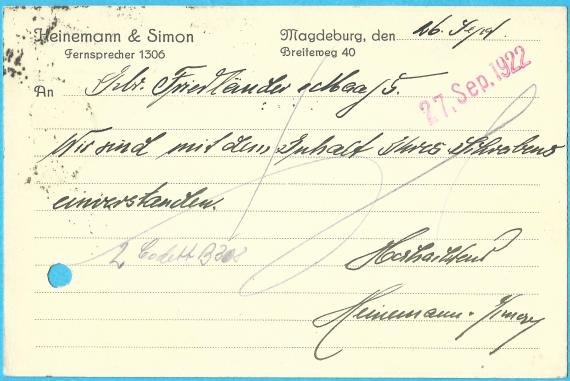 Heinemann & Simon
Fernsprecher 1306
Magdeburg, den 26. Sept
Breiteweg 40
27. Sep. 1922
An Gebr. Friedländer
Wir sind mit dem Inhalt Ihres Schreibens
einverstanden.
2
Hochachtend
Heinemann & Simon